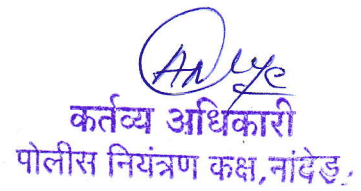 कर्तव्य अधिकारी
पोलीस नियंत्रण कक्ष,नांदेड.